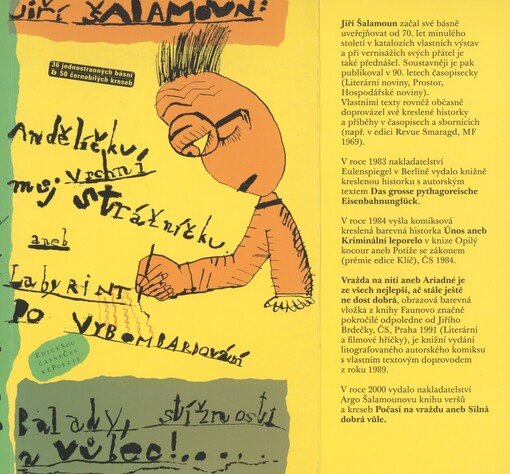 Jiří Šalamoun:
36 jednostranných básní
& 50 černobílých kreseb
Andělíčku,
můj vrchní
strážníčku
aneb
Labyrint
po vybombardování
Edice Sou
časné Čes
ké Poezie
Balady, stížnosti
a vůbec!.....
Jiří Šalamoun začal své básně
uveřejňovat od 70. let minulého
století v katalozích vlastních výstav
a při vernisážích svých přátel je
také přednášel. Soustavněji je pak
publikoval v 90. letech časopisecky
(Literární noviny, Prostor,
Hospodářské noviny).
Vlastními texty rovněž občasně
doprovázel své kreslené historky
a příběhy v časopisech a sbornících
(např. v edici Revue Smaragd, MF
1969).
V roce 1983 nakladatelství
Eulenspiegel v Berlíně vydalo knižně
kreslenou historku s autorským
textem Das grosse pythagoreische
Eisenbahnunglück.
V roce 1984 vyšla komiksová
kreslená barevná historka Únos aneb
Kriminální leporelo v knize Opilý
kocour aneb Potíže se zákonem
(prémie edice Klíč), ČS 1984.
Vražda na niti aneb Ariadné je
ze všech nejlepší, ač stále ještě
ne dost dobrá, obrazová barevná
vložka z knihy Faunovo značně
pokročilé odpoledne od Jiřího
Brdečky, ČS, Praha 1991 (Literární
a filmové hříčky), je knižní vydání
litografovaného autorského komiksu
s vlastním textovým doprovodem
z roku 1989.
V roce 2000 vydalo nakladatelství
Argo Šalamounovu knihu veršů
a kreseb Počasí na vraždu aneb Silná
dobrá vůle.